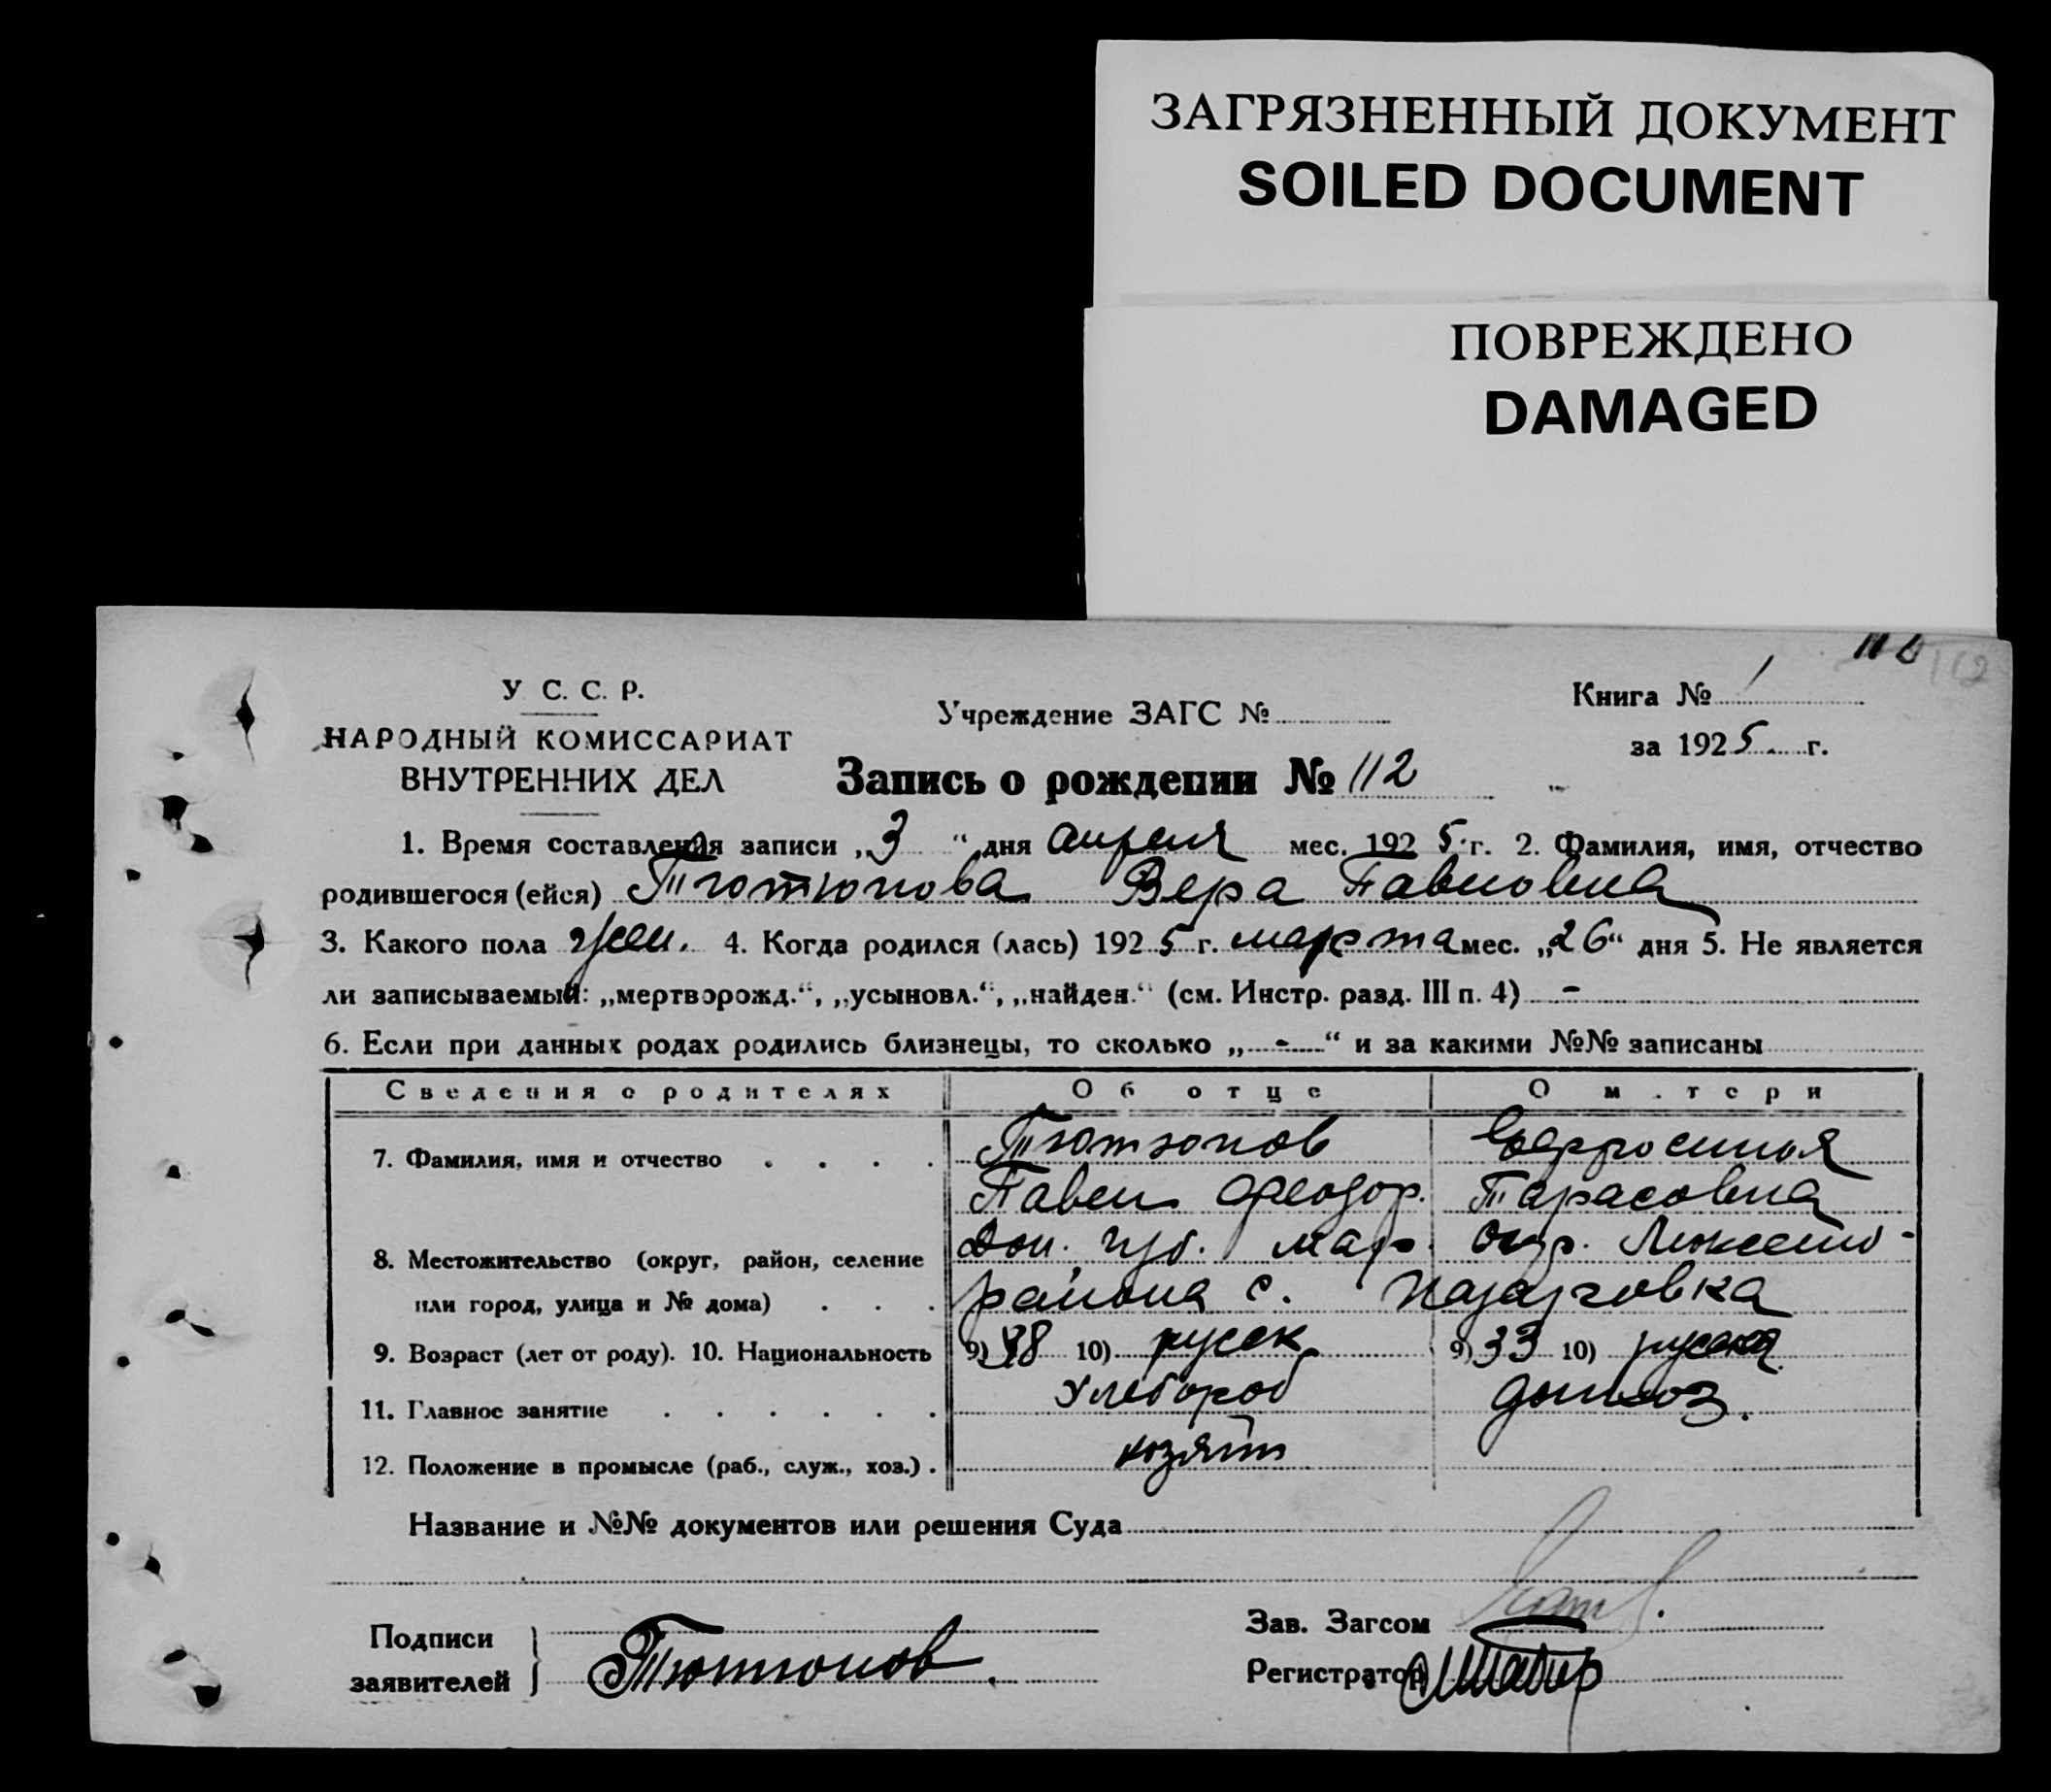 ЗАГРЯЗНЕННЫЙ ДОКУМЕНТ
SOILED DOCUMENT
ПОВРЕЖДЕНО
DAMAGED
112
У С. С. Р.
Учреждение ЗАГС №
Книга № 1
НАРОДНЫЙ КОМИССАРИАТ
за 1925 г.
ВНУТРЕННИХ ДЕЛ
Запись о рождении № 112
1. Время составления записи „3“ дня апреля мес. 1925 г. 2. Фамилия, имя, отчество
родившегося (ейся) Тютюнова Вера Павловна
3. Какого пола жен. 4. Когда родился (лась) 1925 г. марта мес. „26“ дня 5. Не является
ли записываемый: „мертворожд.“, „усыновл.“, „найден.“ (см. Инстр. разд. III п. 4) -
6. Если при данных родах родились близнецы, то сколько „-“ и за какими №№ записаны
Сведения о родителях Об отце О м.тери
7. Фамилия, имя и отчество Тютюнов Ефросинья
Павел Феодор. Тарасовна
8. Местожительство (округ, район, селение Дон. губ. Мар. окр.
или город, улица и № дома) района с.
9. Возраст (лет от роду). 10. Национальность 9) 38 10) русск 9) 33 10) русская
11. Главное занятие Хлебороб домхоз.
12. Положение в промысле (раб., служ., хоз.) хозяин
Название и №№ документов или решения Суда
Подписи
заявителей
Тютюнов
Зав. Загсом
Регистратор